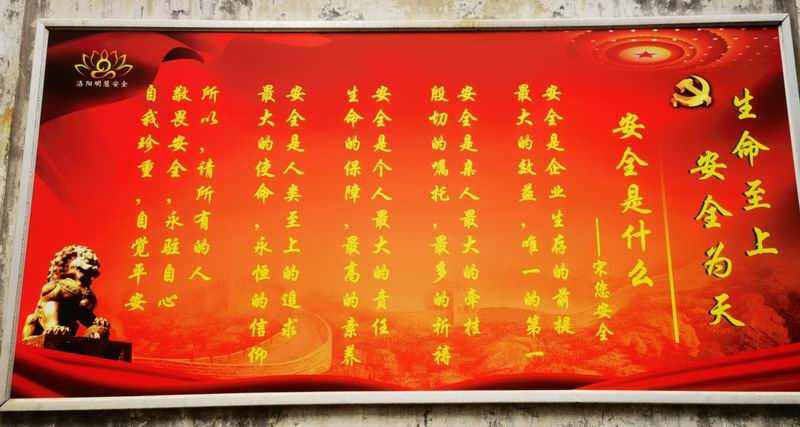 生命至上
安全为天
安全是什么
——宋您安全
安全是企业生存的前提
最大的效益，唯一的第一
安全是亲人最大的牵挂
殷切的嘱托，最多的祈祷
安全是个人最大的责任
生命的保障，最高的素养
安全是人类至上的追求
最大的使命，永恒的信仰
所以，请所有的人
敬畏安全，永驻自心
自我珍重，自觉平安
洛阳明慧安全